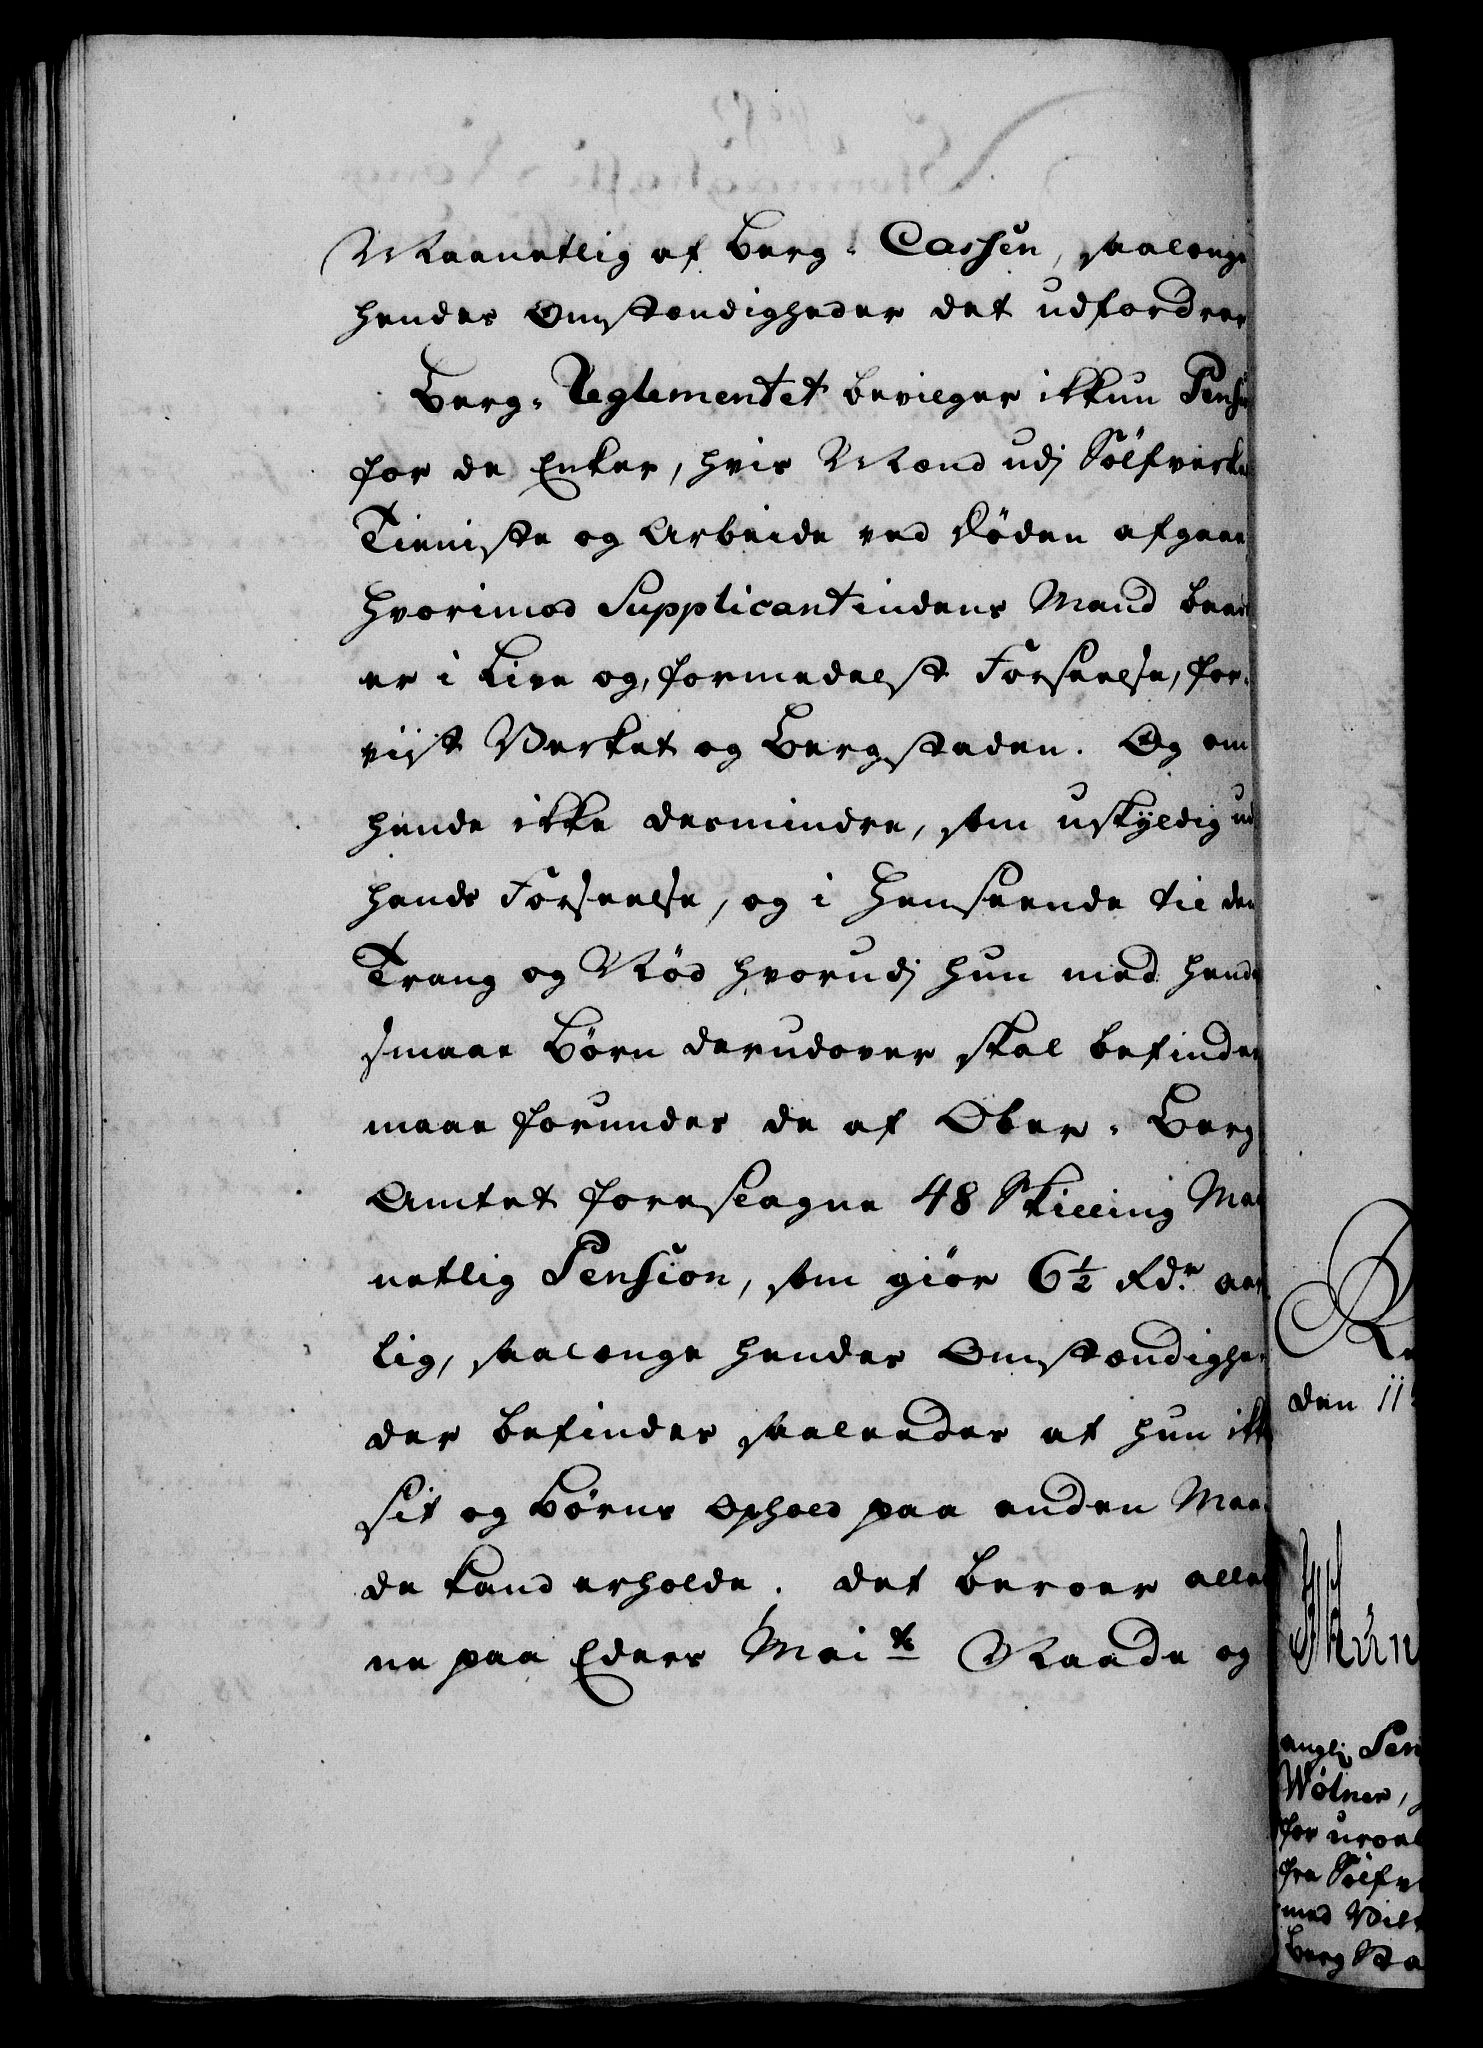 Maanetlig af Berg-Cassen, saalenge
hendes Omstændigheder det udfordrer
Berg-Reglementet bevilger ikkun Pensi
for de Enker, hvis Mænd udj Sølfverke
Tieniste og Arbeide ved Døden afgaae,
hvorimod Supplicantindens Mand
er i Live og, formedelst Forseelse, for-
viist Verket og Bergstaden. Og om
hende ikke desmindre, som uskyldig ud
hands Forseelse, og i Henseende til den
Trang og Nød hvorudj hun med hende
smaae Børn derudover skal befinde
maae forundes de af Ober-Berg
Amtet foreslagne 48 Skilling Maa
netlig Pension, som giør 6½ Rdr. aar
lig, saalænge hendes Omstændighe-
der befindes saaleedes at hun ikke
sit og Børns Ophold paa anden Maa-
de kand erholde. Det beroer alle
ne paa Eders Maits Naade og
den 11
anglj Pen
Wölner,
for
fra Sølfv
med
Berg Ra